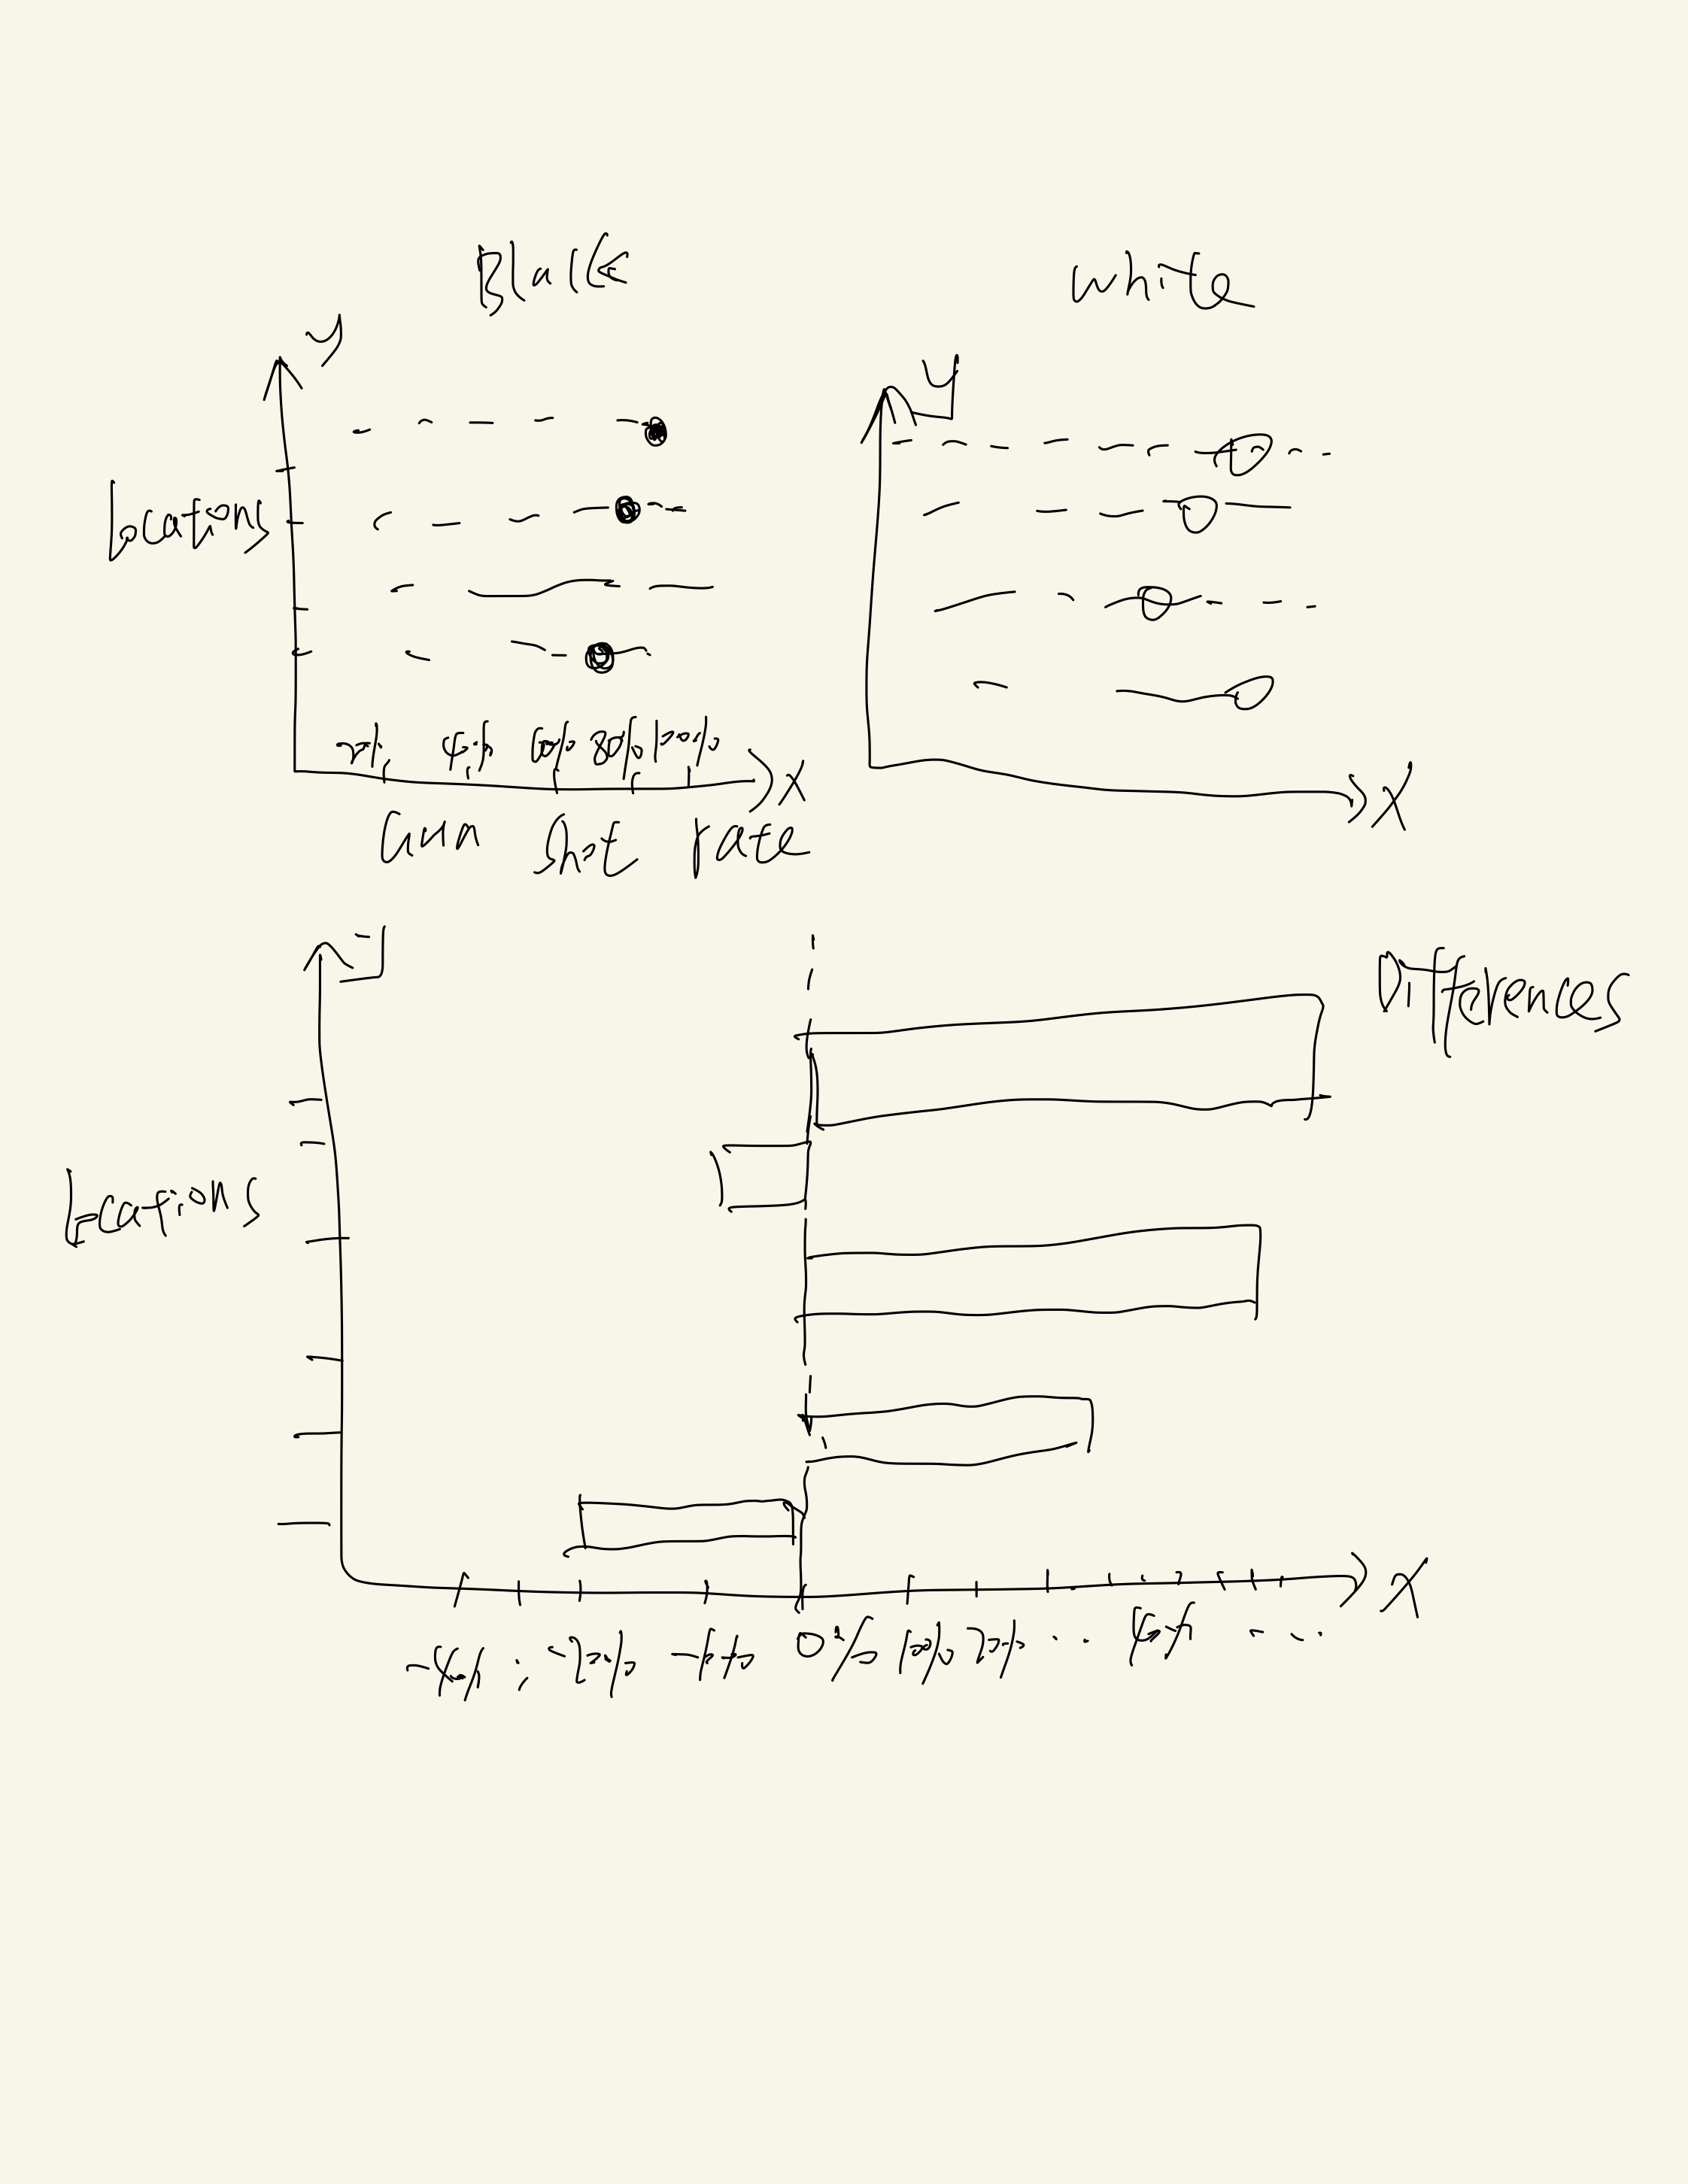 Black
white
y
y
Locations
20% 40% 60% 80% 100%
x
x
Gun shot rate
y
Differences
Locations
x
-40% : -20% 0% 10% 20% ... ...